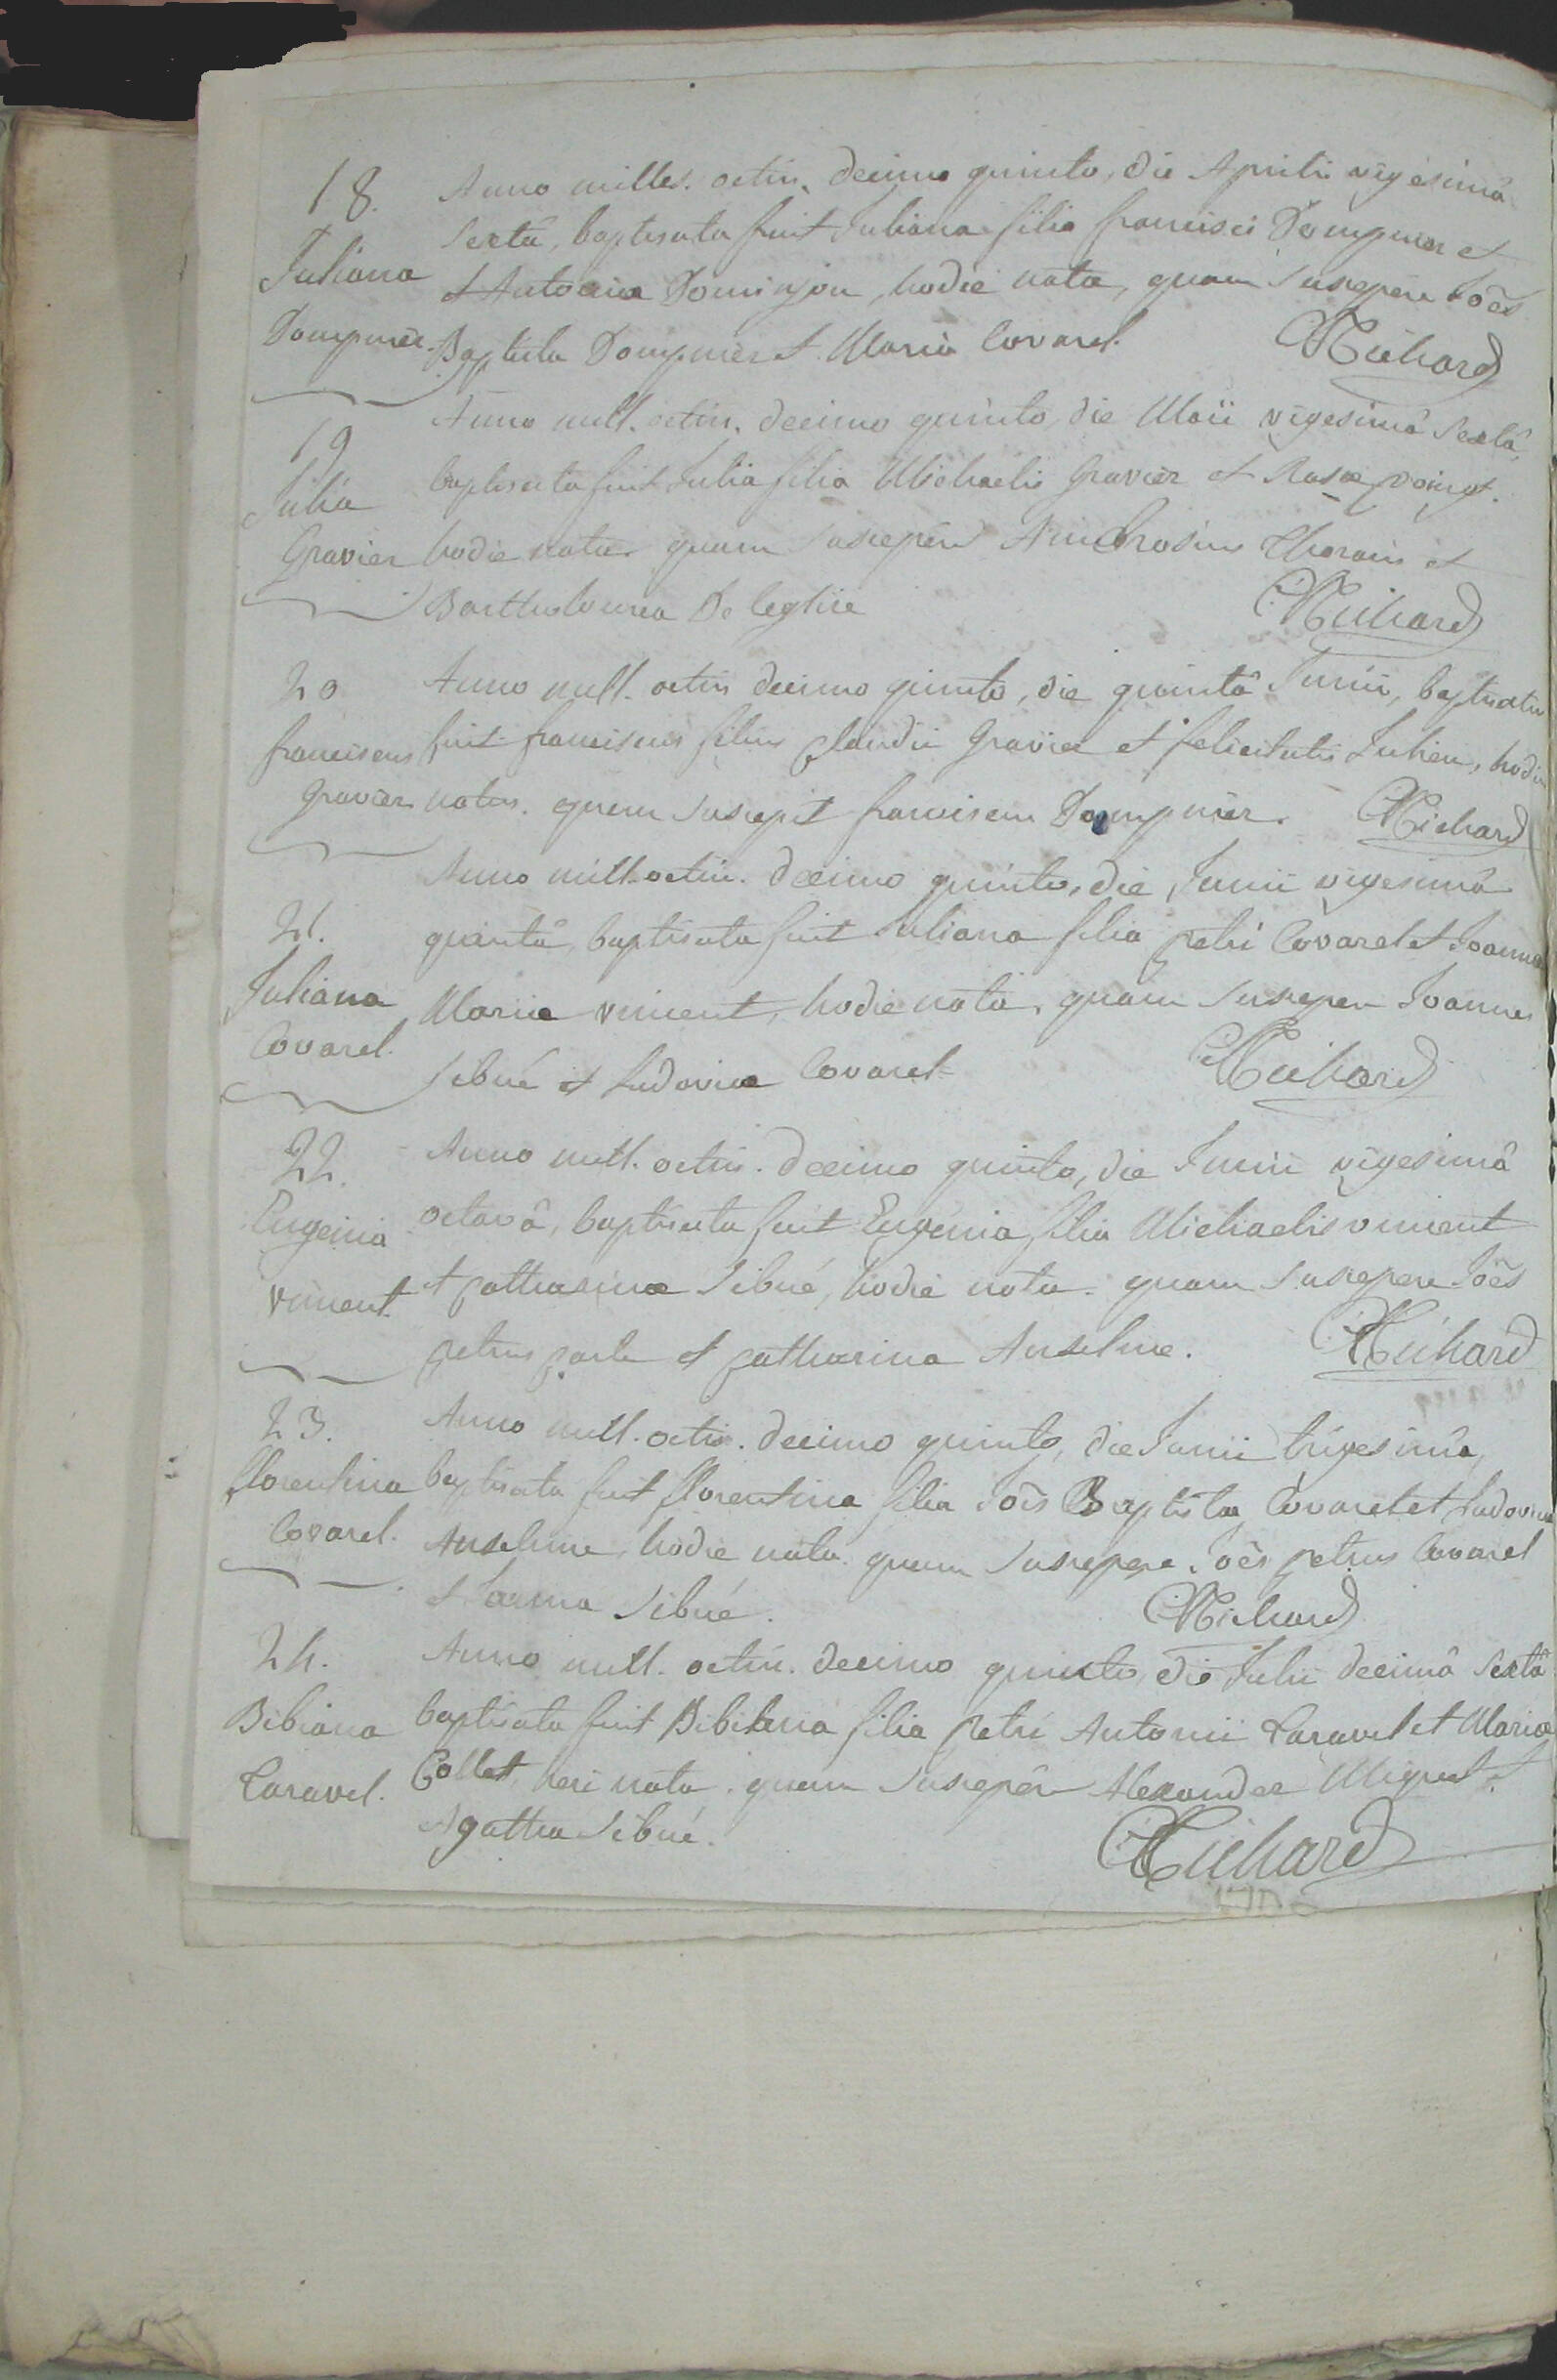 18. Anno milles. octin. decimo quinto, die Aprilis vigesimâ
Sextâ, baptisata fuit Juliana filia francisci Dompnier et
Juliana
et Antonia Dominjon, hodie nata, quam Suscepere Joês
Dompnier. Baptista Dompnier et Maria Covarel. Richard
Anno mill. octin. decimo quinto, die Maii vigesimâ Sextâ,
19
baptisata fuit Julia filia Michaelis Gravier et Rosæ
Julia
Gravier hodie nata quam Suscepêre Ambrosius et
Bartholomea Richard
20 Anno mill. octin decimo quinto, die quintâ Junii, baptisatus
franciscus fuit franciscus filius Claudii Gravier et felicitatis Julien, hodie
Gravier natus. quem Suscepit franciscus Dompnier. Richard
Anno mill. octin. decimo quinto, die Junii vigesimâ
21. quintâ, baptisata fuit Juliana filia petri Covarel et Joannæ
Juliana Mariæ vincent, hodie nata, quam Suscepere Joannes
Covarel. Sibué et Ludovica Covarel Richard
22. Anno mill. octin. decimo quinto, die Junii vigesimâ
Eugenia octavâ, baptisata fuit Eugenia filia Michaelis vincent
vincent et Catharinæ Sibué, hodie nata. quam Suscepere Joês
petrus et Catharina Anselme. Richard
23. Anno mill. octin. decimo quinto, die Junii trigesimâ,
florentina baptisata fuit florentina filia Joês Baptistæ Covarel et Ludovicæ
Covarel. Anselme, hodie nata. quam Suscepere Joês petrus Covarel
et Joanna Sibué. Richard
24. Anno mill. octin. decimo quinto, die Julii decimâ Sextâ
Bibiana baptisata fuit Bibiana filia petri Antonii Laravel et Mariæ
Laravel. Collet, heri nata. quam Suscepêre Alexander et
Agatha Sibué. Richard